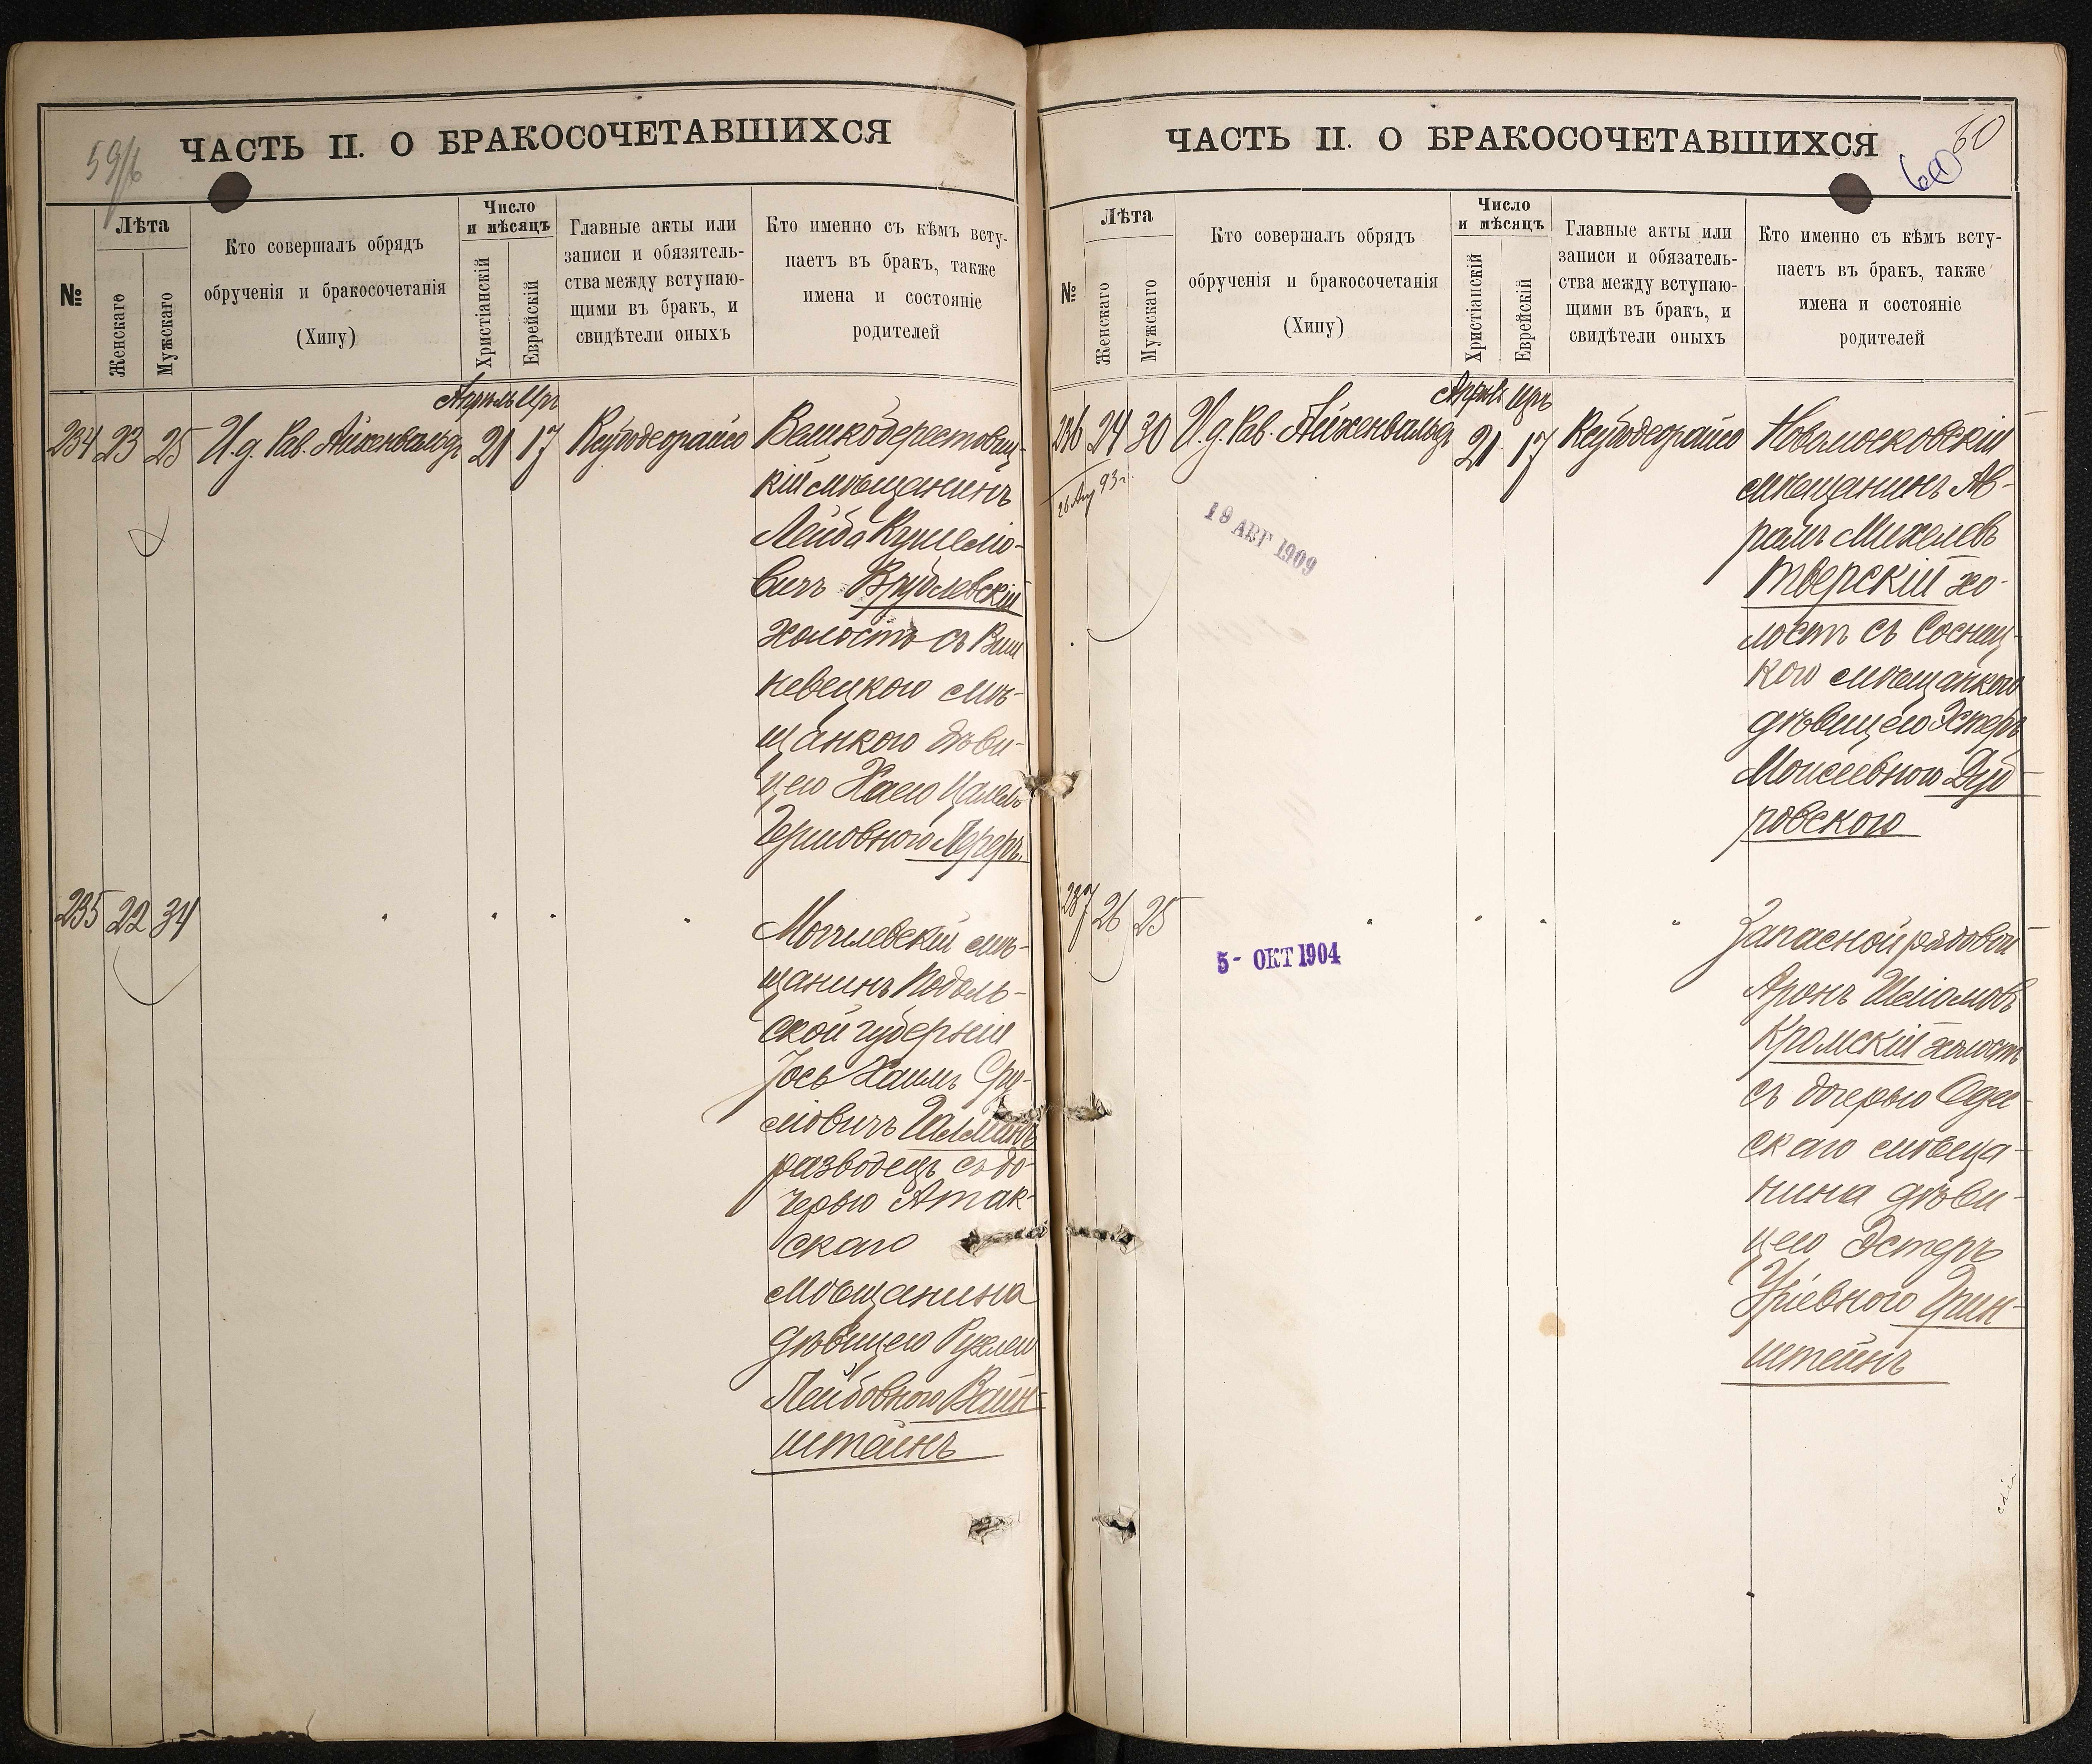 59/б
ЧАСТЬ II. О БРАКОСОЧЕТАВШИХСЯ
№
Лѣта
Женскаго
Мужскаго
Кто совершалъ обрядъ
обрученія и бракосочетанія
(Хипу)
Число
и мѣсяцъ
Христіанскій
Еврейскій
Главные акты или
записи и обязятель-
ства между вступаю-
щими въ бракъ, и
свидѣтели оныхъ
Кто именно съ кѣмъ всту-
паетъ въ бракъ, также
имена и состояніе
родителей
Апрѣль Иръ
234 23 25 И.д. Рав. Айхенвальдъ 21 17 Ксубодеорайсо
Великоберестовиц-
кій мѣщанинъ
Лейба Кушеліо-
вичъ Врублевскій
холостъ съ Виш
невецкою мѣ-
щанкою дѣви-
цею Хаею Цалель
Гершовною Лереръ
235 22 34 " " " "
Могилевскій мѣ-
щанинъ Подоль-
ской губерніи
Іось Хаимъ Сру-
ліовичъ
разводецъ съ до-
черью Атак-
скаго
мѣщанина
дѣвицею Рухлею
Лейбовною Вайн-
штейнъ
ЧАСТЬ II. О БРАКОСОЧЕТАВШИХСЯ
60
60
№
Лѣта
Женскаго
Мужскаго
Кто совершалъ обрядъ
обрученія и бракосочетанія
(Хипу)
Число
и мѣсяцъ
Христіанскій
Еврейскій
Главные акты или
записи и обязатель-
ства между вступаю-
щими въ бракъ, и
свидѣтели оныхъ
Кто именно съ кѣмъ всту-
паетъ въ бракъ, также
имена и состояніе
родителей
Апрѣль Иръ
236 24 30 И.д. Рав. Айхенвальдъ 21 17 Ксубодеорайсо
26 Апр 93 г.
19 АВГ 1909
Новомосковскій
мѣщанинъ Ав-
рамъ Михелевъ
Тверскій хо-
лостъ съ Сосниц-
кою мѣщанкою
дѣвицею Эстеръ
Моисеевною Дуб-
ровскою
237 26 25 " " " "
5- ОКТ 1904
Запасной рядовой
Аронъ Шліомовъ
Кромскій холостъ
съ дочерью Одес-
скаго мѣща-
нина дѣви-
цею Эстеръ
Уріевною Грин-
штейнъ